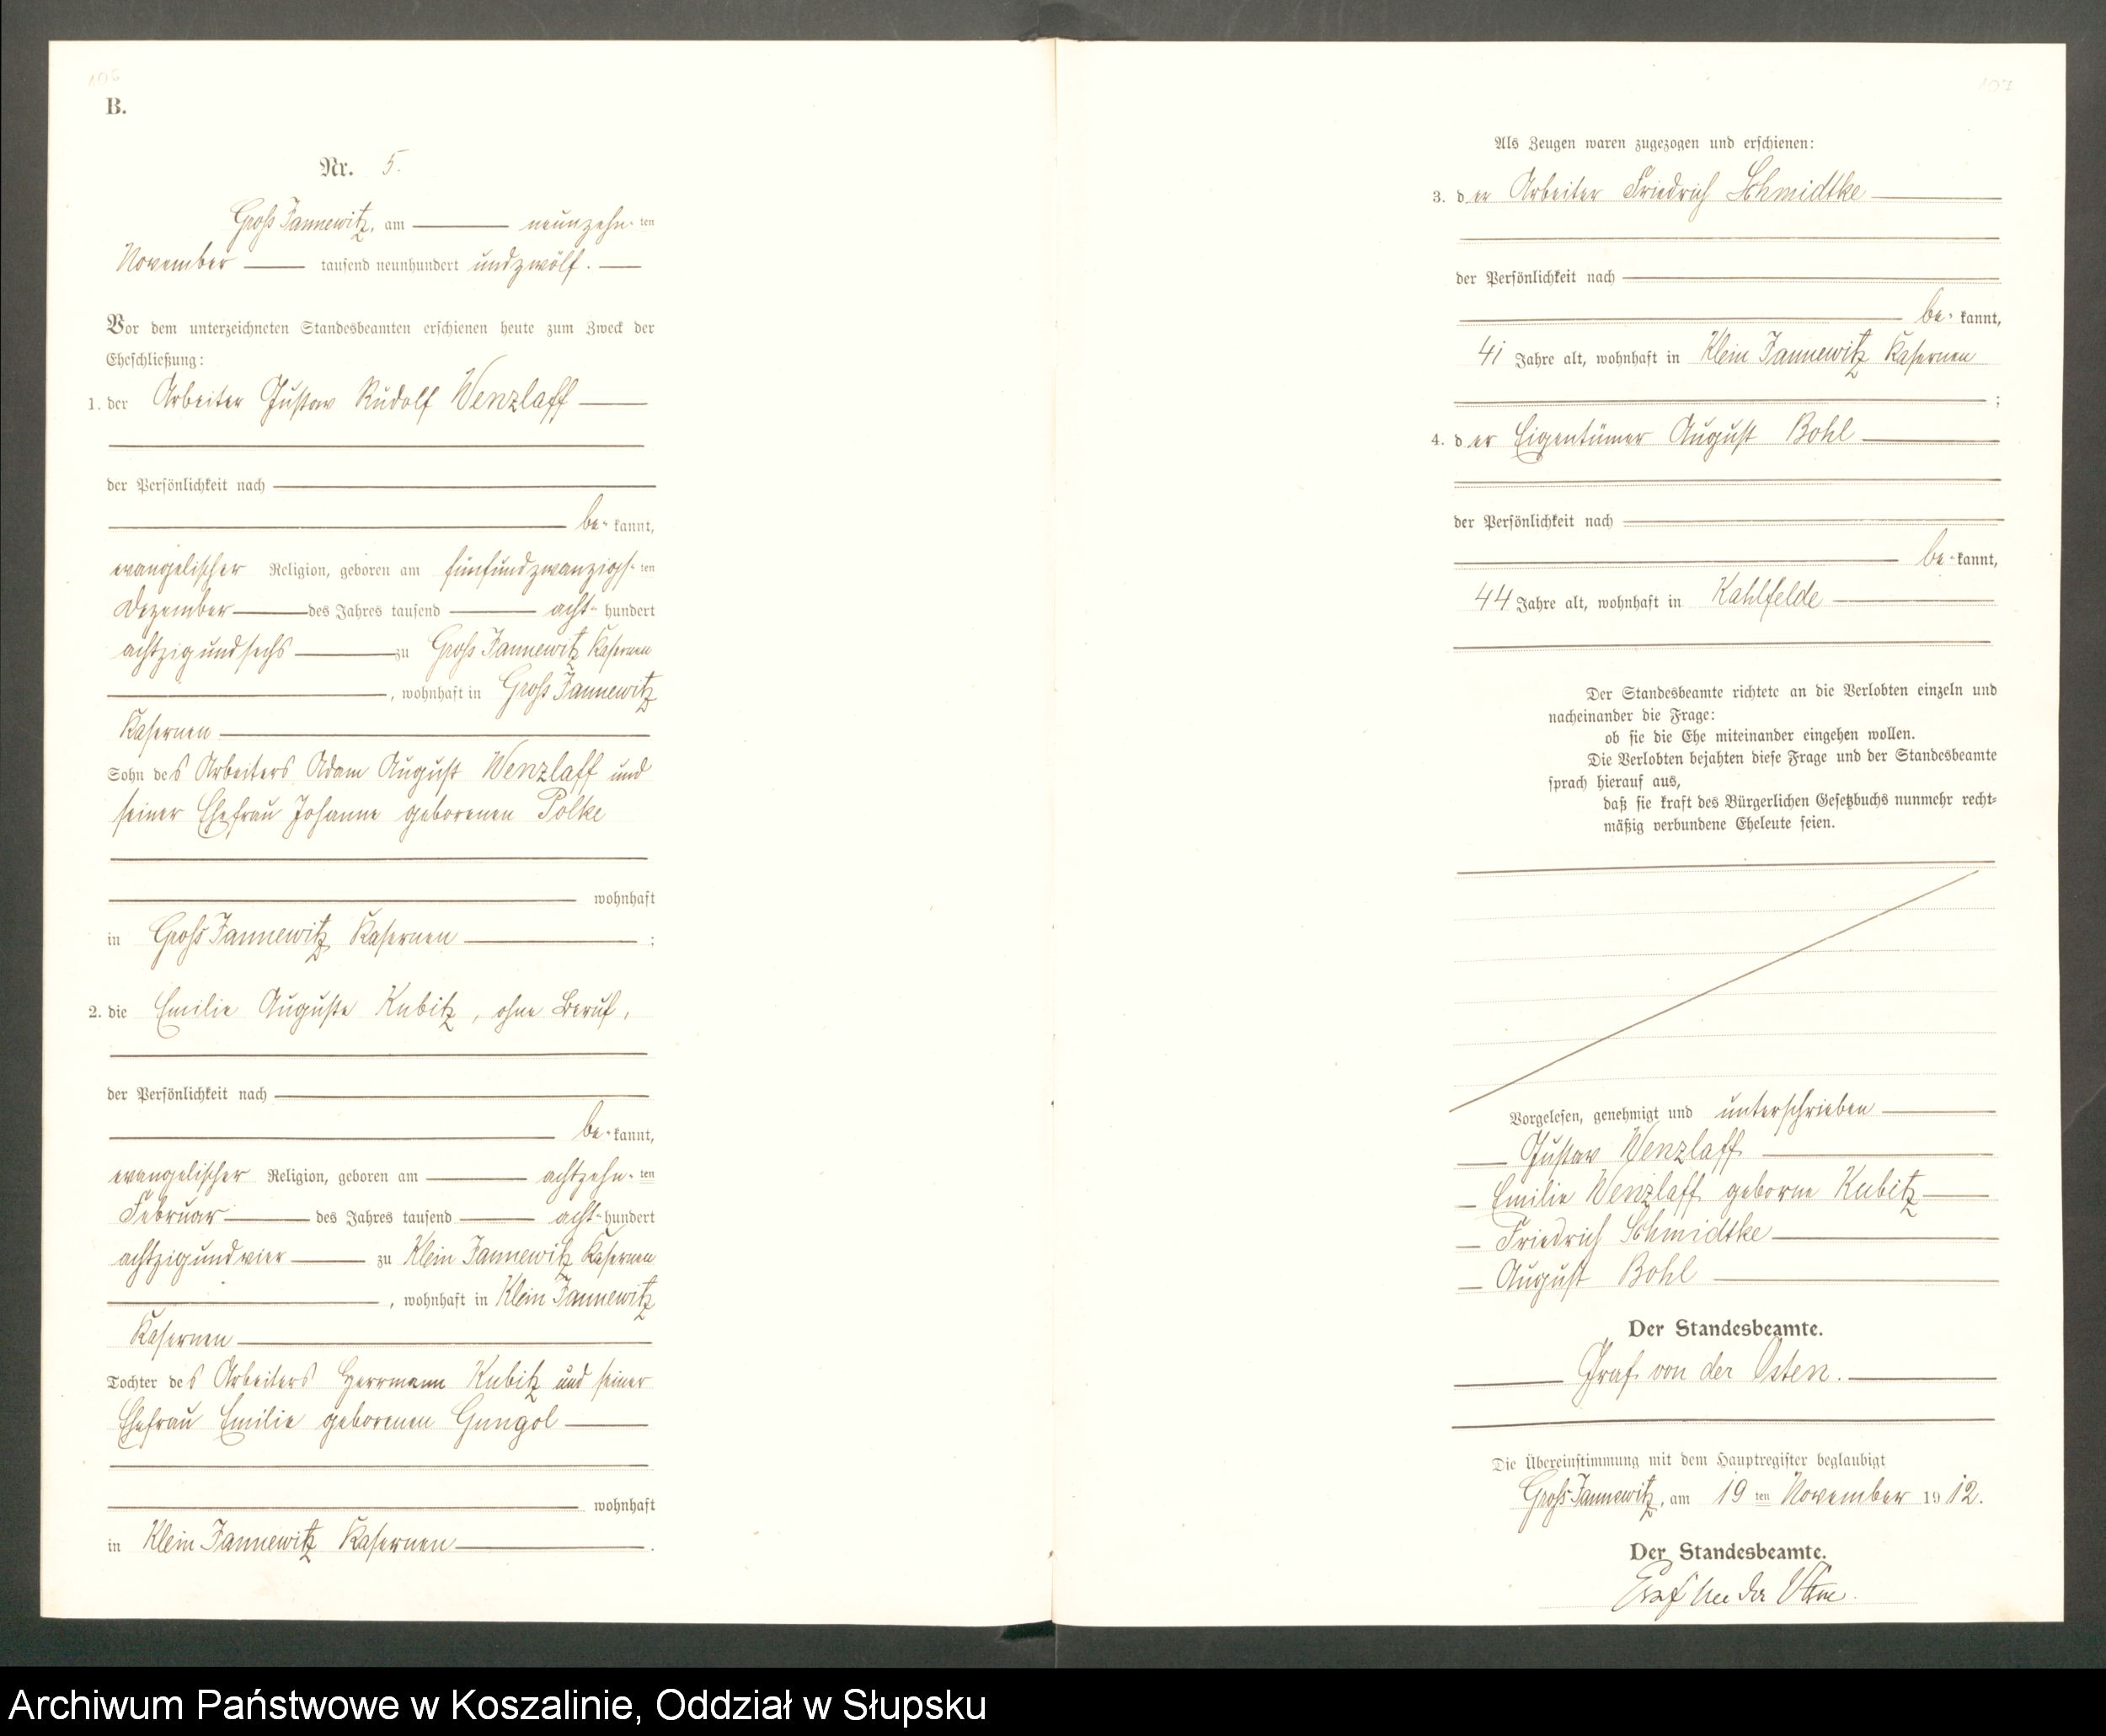 106
B.
Nr. 5.
Groß Jannewitz, am neunzehn-ten
November tausend neunhundert undzwölf.
Vor dem unterzeichneten Standesbeamten erschienen heute zum Zweck der
Eheschließung:
1. der Arbeiter Gustav Rudolf Wenzlaff
der Persönlichkeit nach
be-kannt,
evangelischer Religion, geboren am fünfundzwanzigs-ten
Dezember des Jahres tausend acht-hundert
achtzigundsechs zu Groß Jannewitz Kasernen
, wohnhaft in Groß Jannewitz
Kasernen
Sohn des Arbeiters Adam August Wenzlaff und
seiner Ehefrau Johanne geborenen Polke
wohnhaft
in Groß Jannewitz Kasernen ;
2. die Emilie Auguste Kubitz, ohne Beruf,
der Persönlichkeit nach
be-kannt,
evangelischer Religion, geboren am achtzehn-ten
Februar des Jahres tausend acht-hundert
achtzigundvier zu Klein Jannewitz Kasernen
, wohnhaft in Klein Jannewitz
Kasernen
Tochter des Arbeiters Herrmann Kubitz und seiner
Ehefrau Emilie geborenen Gungol
wohnhaft
in Klein Jannewitz Kasernen .
107
Als Zeugen waren zugezogen und erschienen:
3. der Arbeiter Friedrich Schmidtke
der Persönlichkeit nach
be-kannt,
41 Jahre alt, wohnhaft in Klein Jannewitz Kasernen
;
4. der Eigentümer August Bohl
der Persönlichkeit nach
be-kannt,
44 Jahre alt, wohnhaft in Kahlfelde
Der Standesbeamte richtete an die Verlobten einzeln und
nacheinander die Frage:
ob sie die Ehe miteinander eingehen wollen.
Die Verlobten bejahten diese Frage und der Standesbeamte
sprach hierauf aus,
daß sie kraft des Bürgerlichen Gesetzbuchs nunmehr recht-
mäßig verbundene Eheleute seien.
Vorgelesen, genehmigt und unterschrieben
Gustav Wenzlaff
Emilie Wenzlaff geborne Kubitz
Friedrich Schmidtke
August Bohl
Der Standesbeamte.
Graf von der Osten.
Die Übereinstimmung mit dem Hauptregister beglaubigt
Groß Jannewitz, am 19 ten November 1912.
Der Standesbeamte.
Graf von der Osten.
Archiwum Państwowe w Koszalinie, Oddział w Słupsku